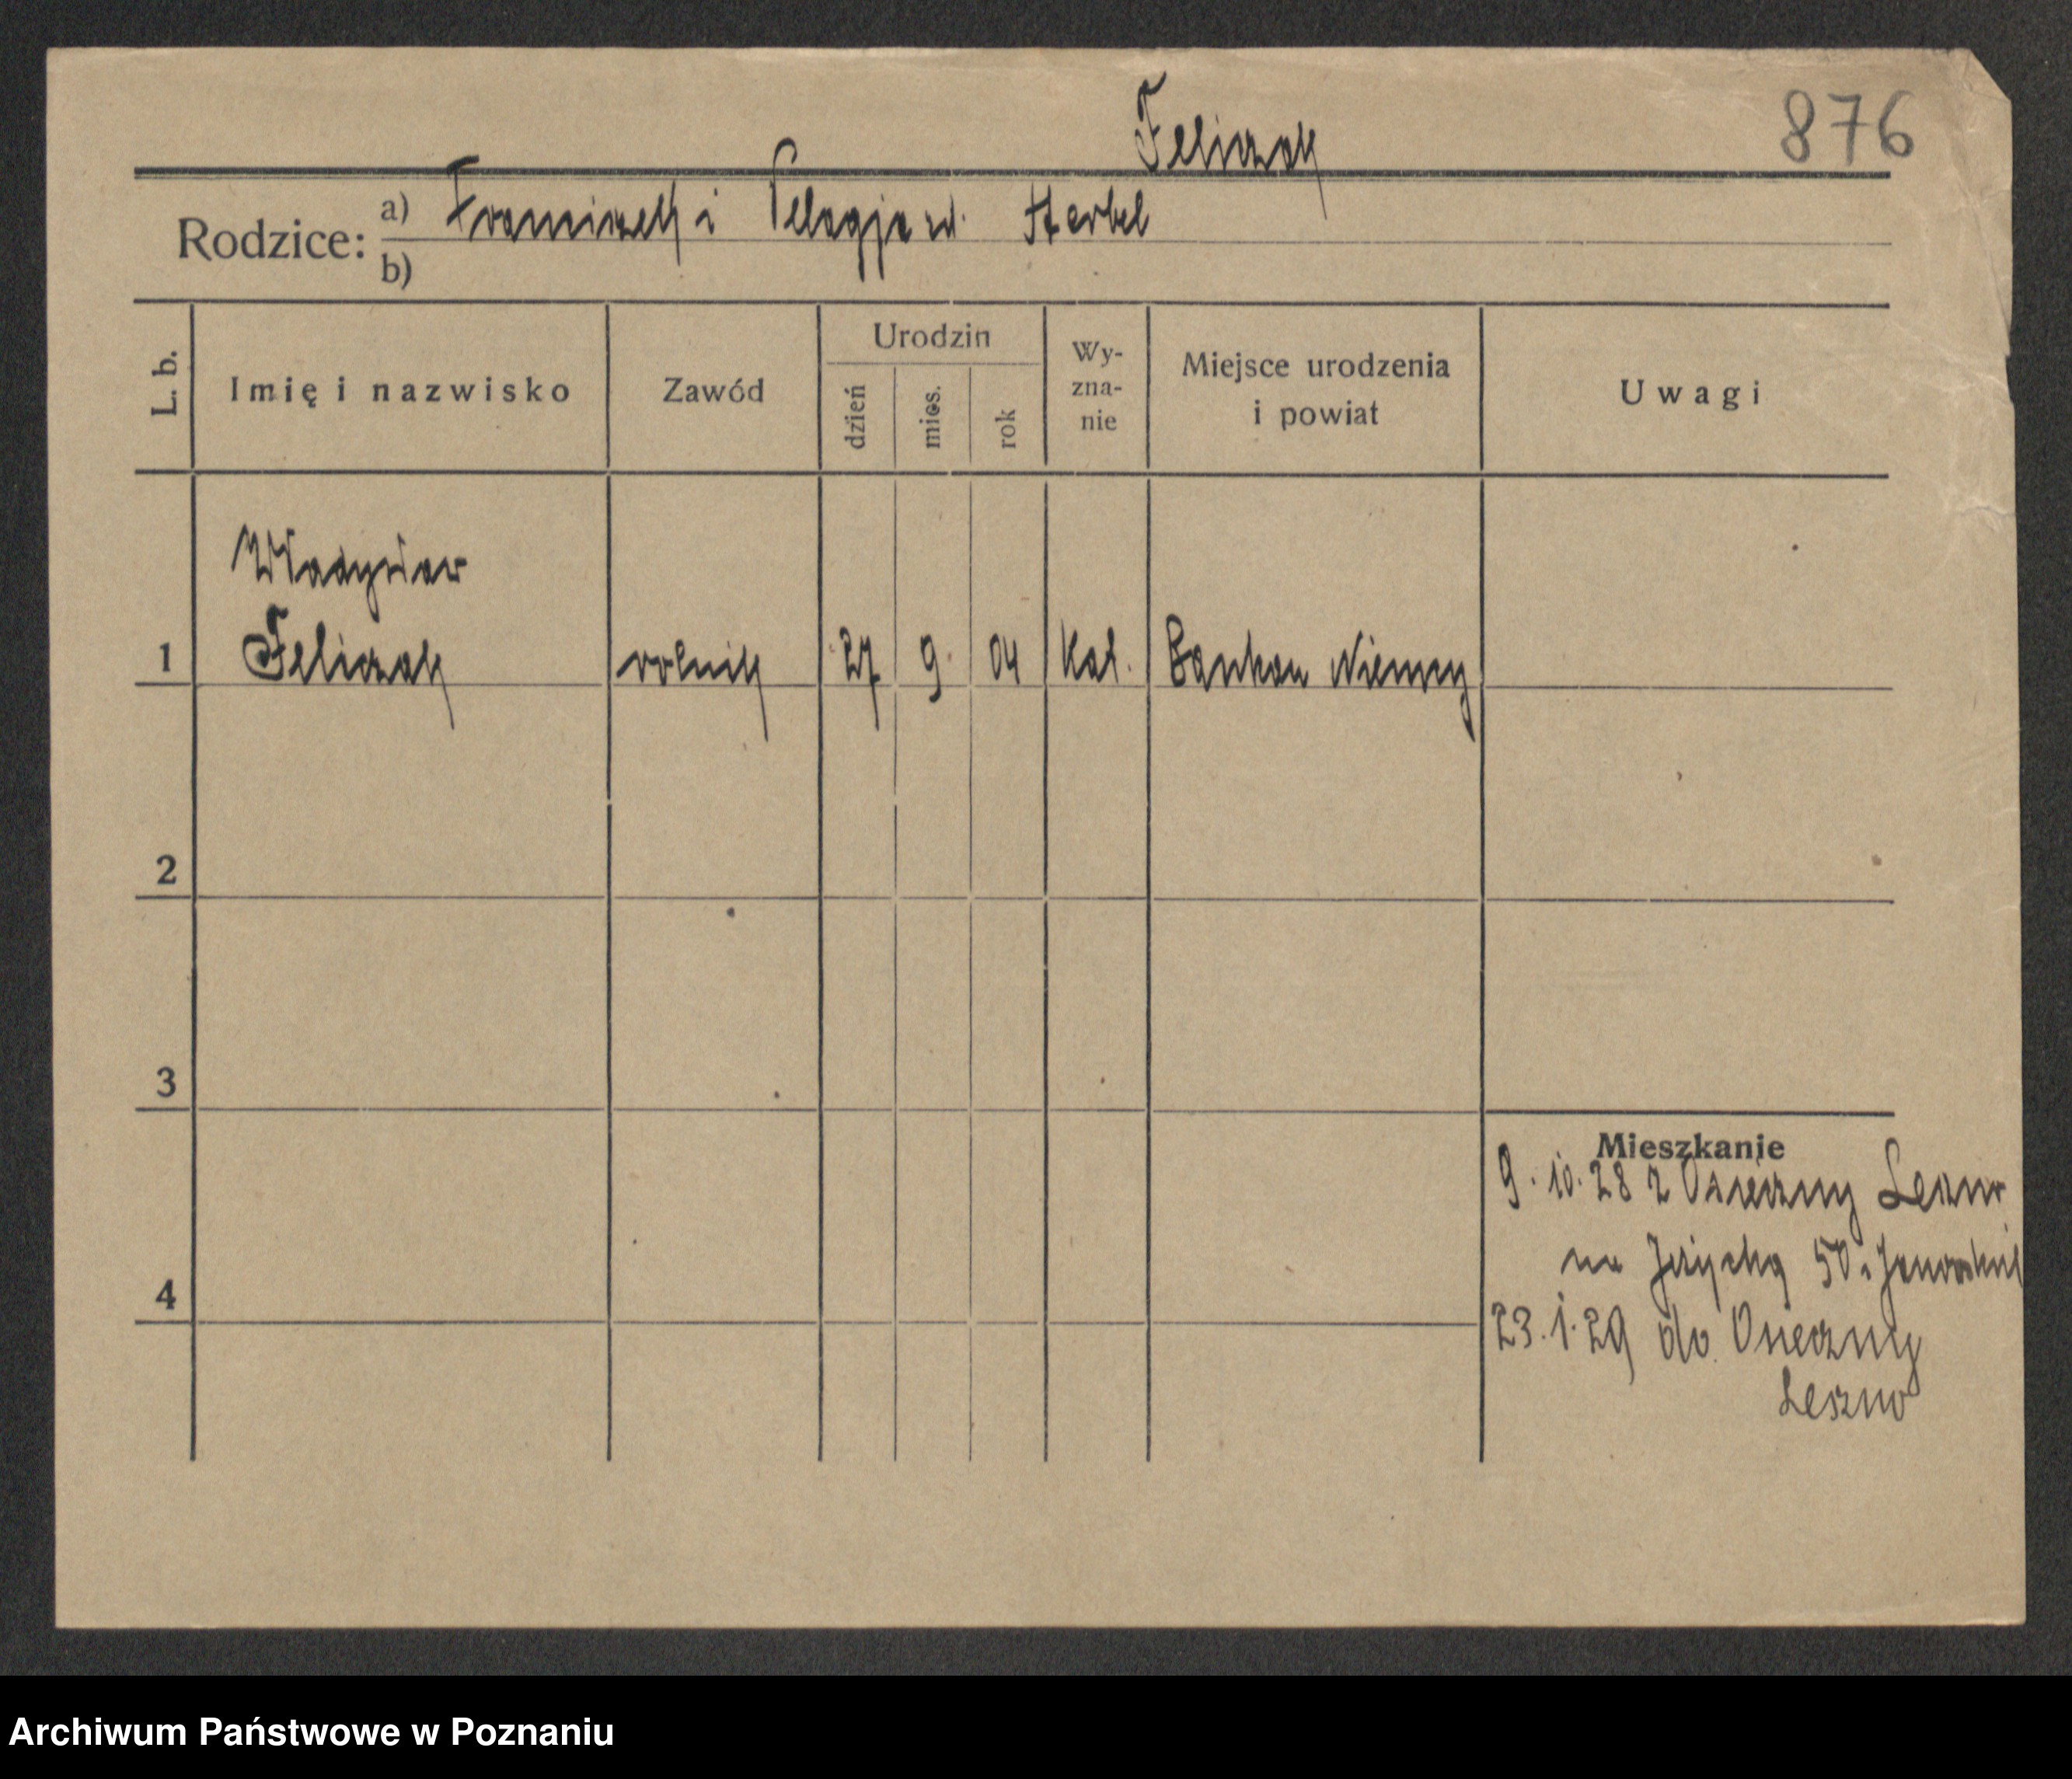 Feliczak
876
Rodzice: a) Franciszek i Pelagja zd. Herbel
b)
L. b.
Imię i nazwisko
Zawód
Urodzin
dzień
mies.
rok
Wy-
zna-
nie
Miejsce urodzenia
i powiat
Uwagi
Władysław
1 Feliczak rolnik 27 9. 04 Kat. Niemcy
2
3
4
Mieszkanie
9. 10. 28 z Osieczny Leszno
na 50
23. 1. 29 do Osieczny
Leszno
Archiwum Państwowe w Poznaniu